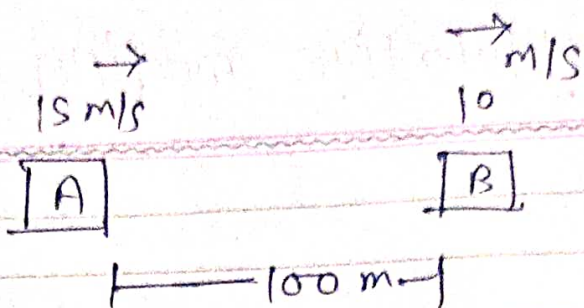 15 m/s
10 m/s
A
B
100 m